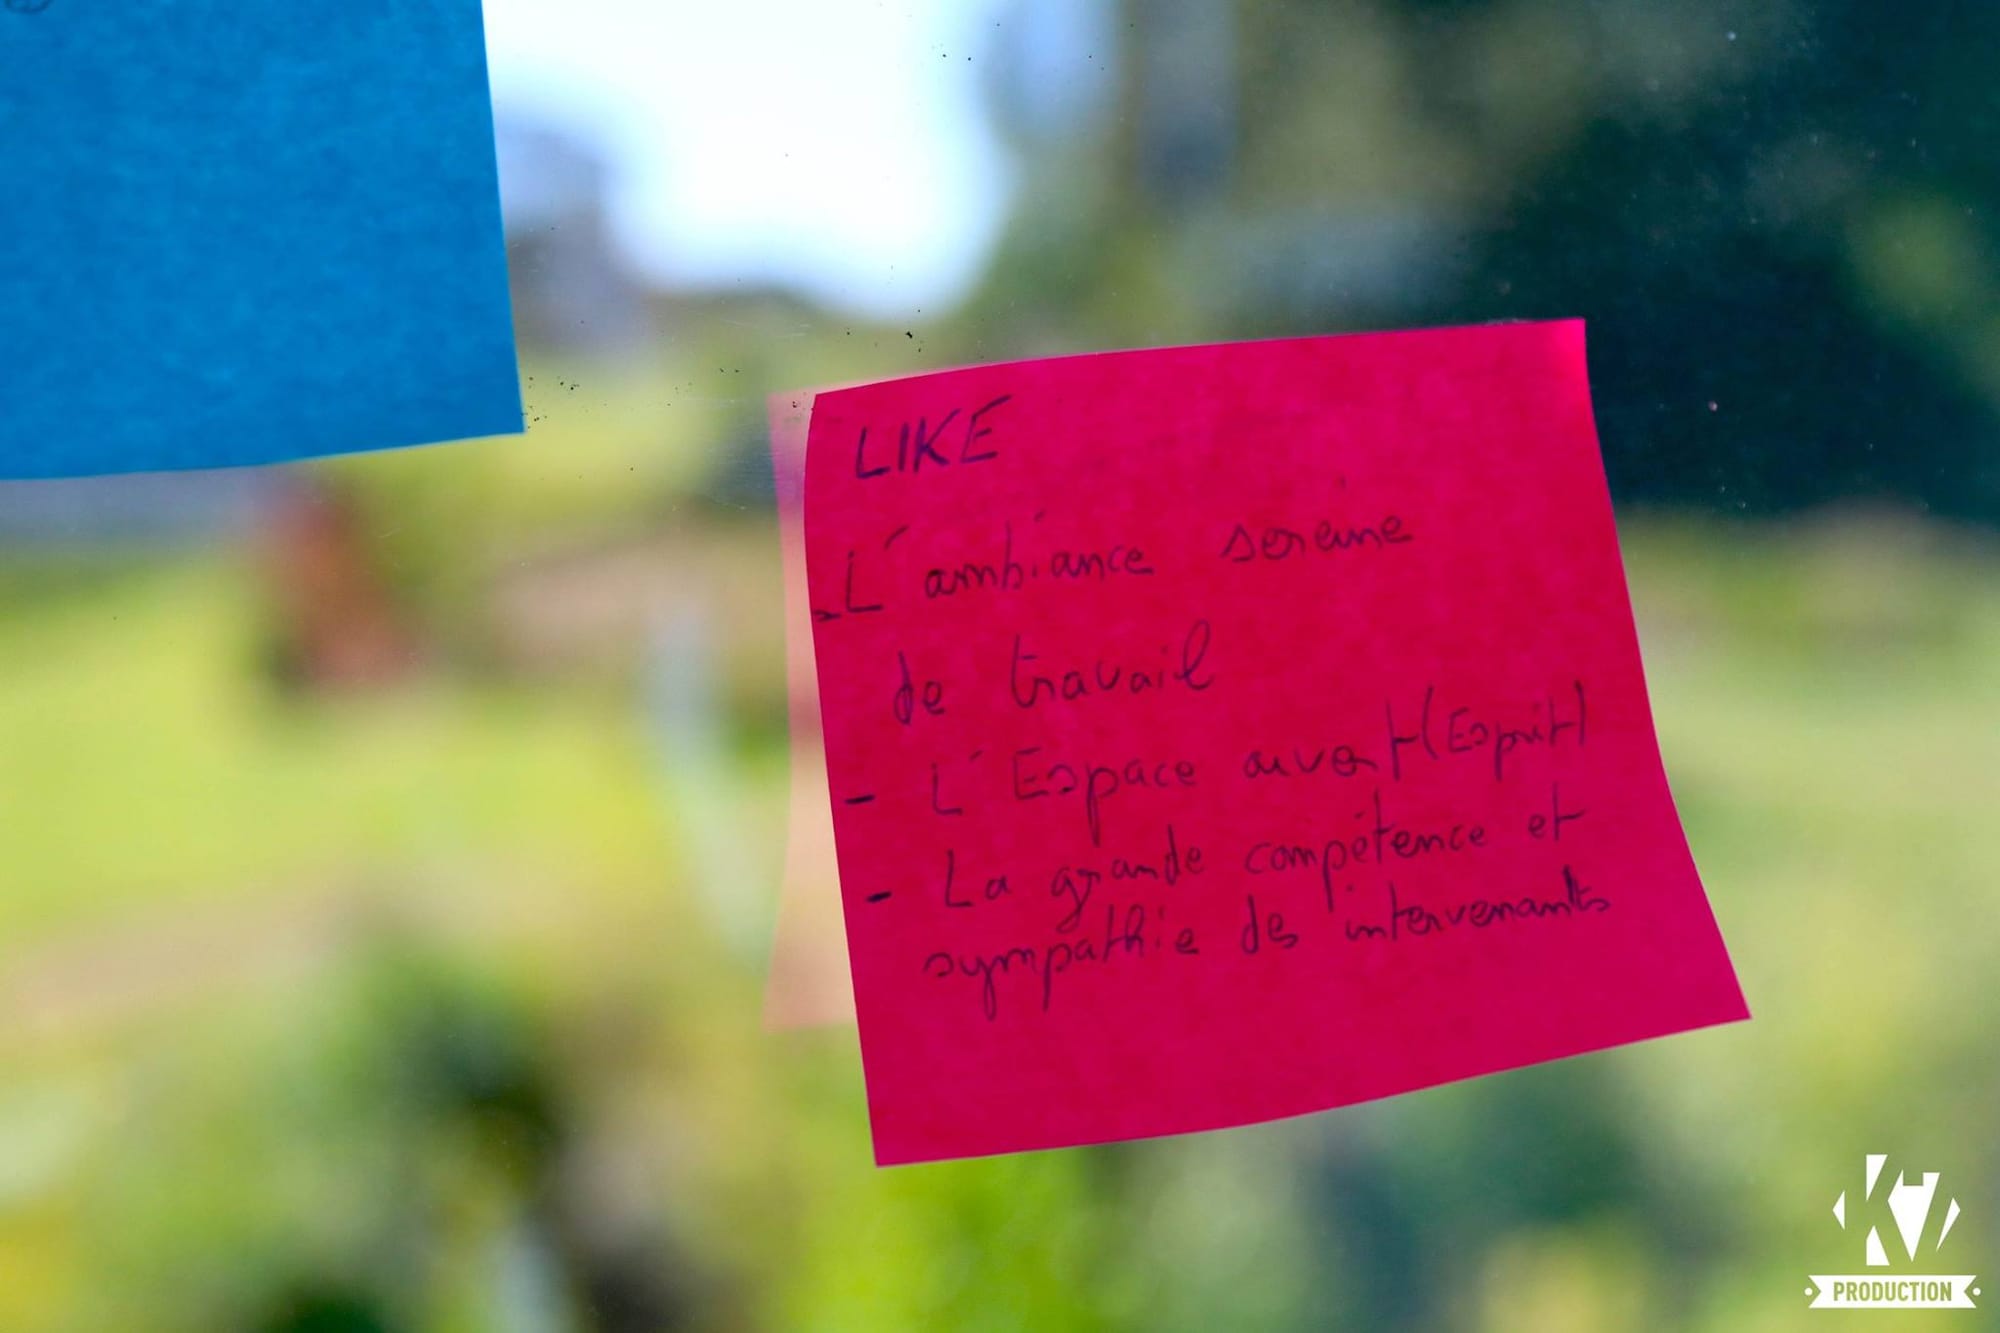 LIKE
- L'ambiance sereine
de travail
- L'Espace ouvert (Esprit)
- La grande compétence et
sympathie des intervenants
K7
PRODUCTION